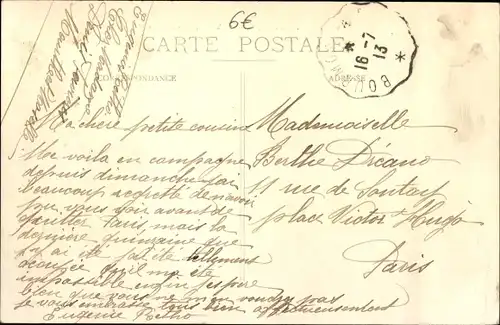 6€
CARTE POSTALE
CORRESPONDANCE
ADRESSE
16-7
13
Ma chère petite cousine
Me voila en campagne
depuis dimanche j'ai
beaucoup regretté de n'avoir
pu vous voir avant de
quitter Paris, mais la
dernière semaine que
j'y ai été j'ai été tellement
occupée qu'il m'a été
impossible enfin j'espère
bien que vous ne m'en voudrez pas
Je vous embrasse tous bien affectueusement
Eugénie
Mademoiselle
Berthe Décano
11 rue de Pontoy
place Victor Hugo
Paris